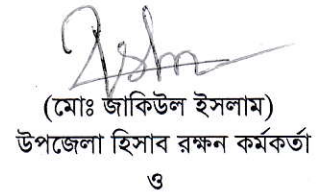 (মোঃ জাকিউল ইসলাম)
উপজেলা হিসাব রক্ষন কর্মকর্তা
ও